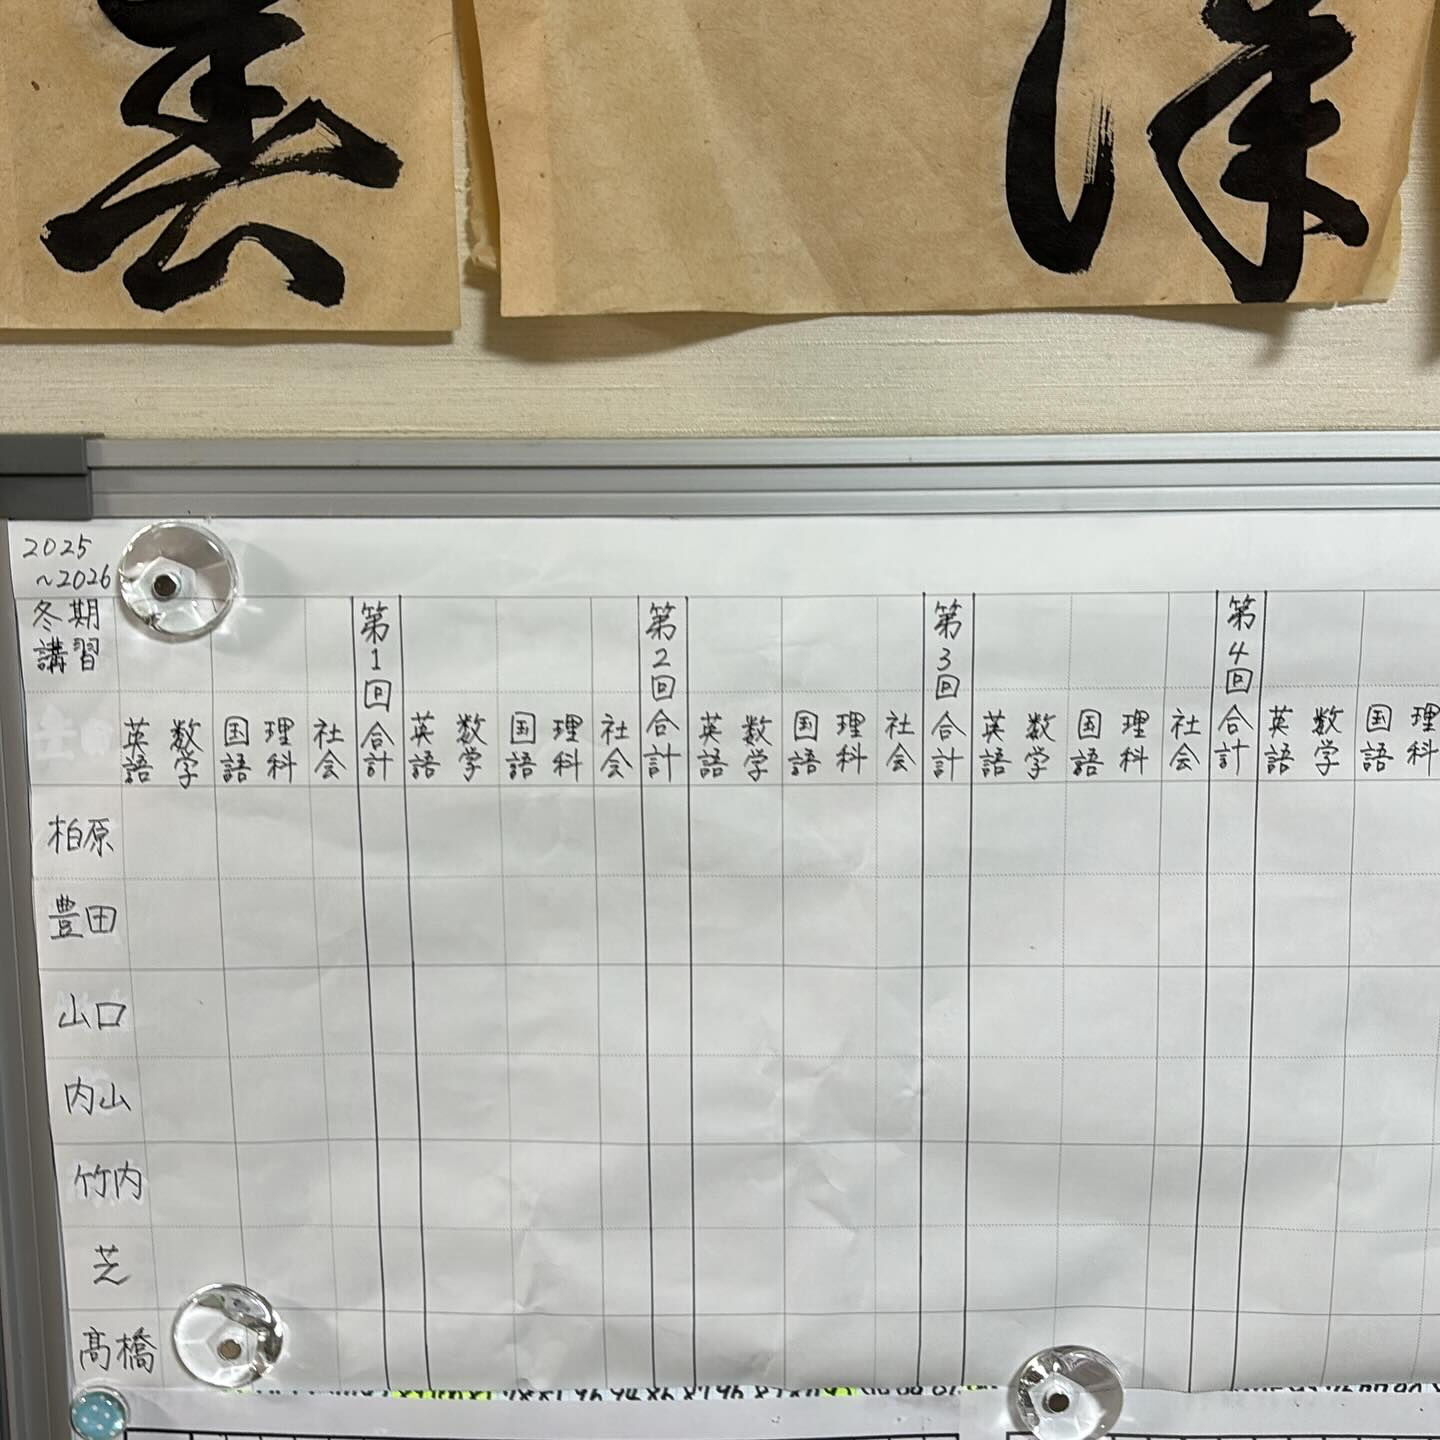 2025
~2026
冬期
講習
第1回合計
第2回合計
第3回合計
第4回合計
英語 数学 国語 理科 社会 英語 数学 国語 理科 社会 英語 数学 国語 理科 社会 英語 数学 国語 理科 社会 英語 数学 国語 理科
柏原
豊田
山口
内山
竹内
芝
髙橋